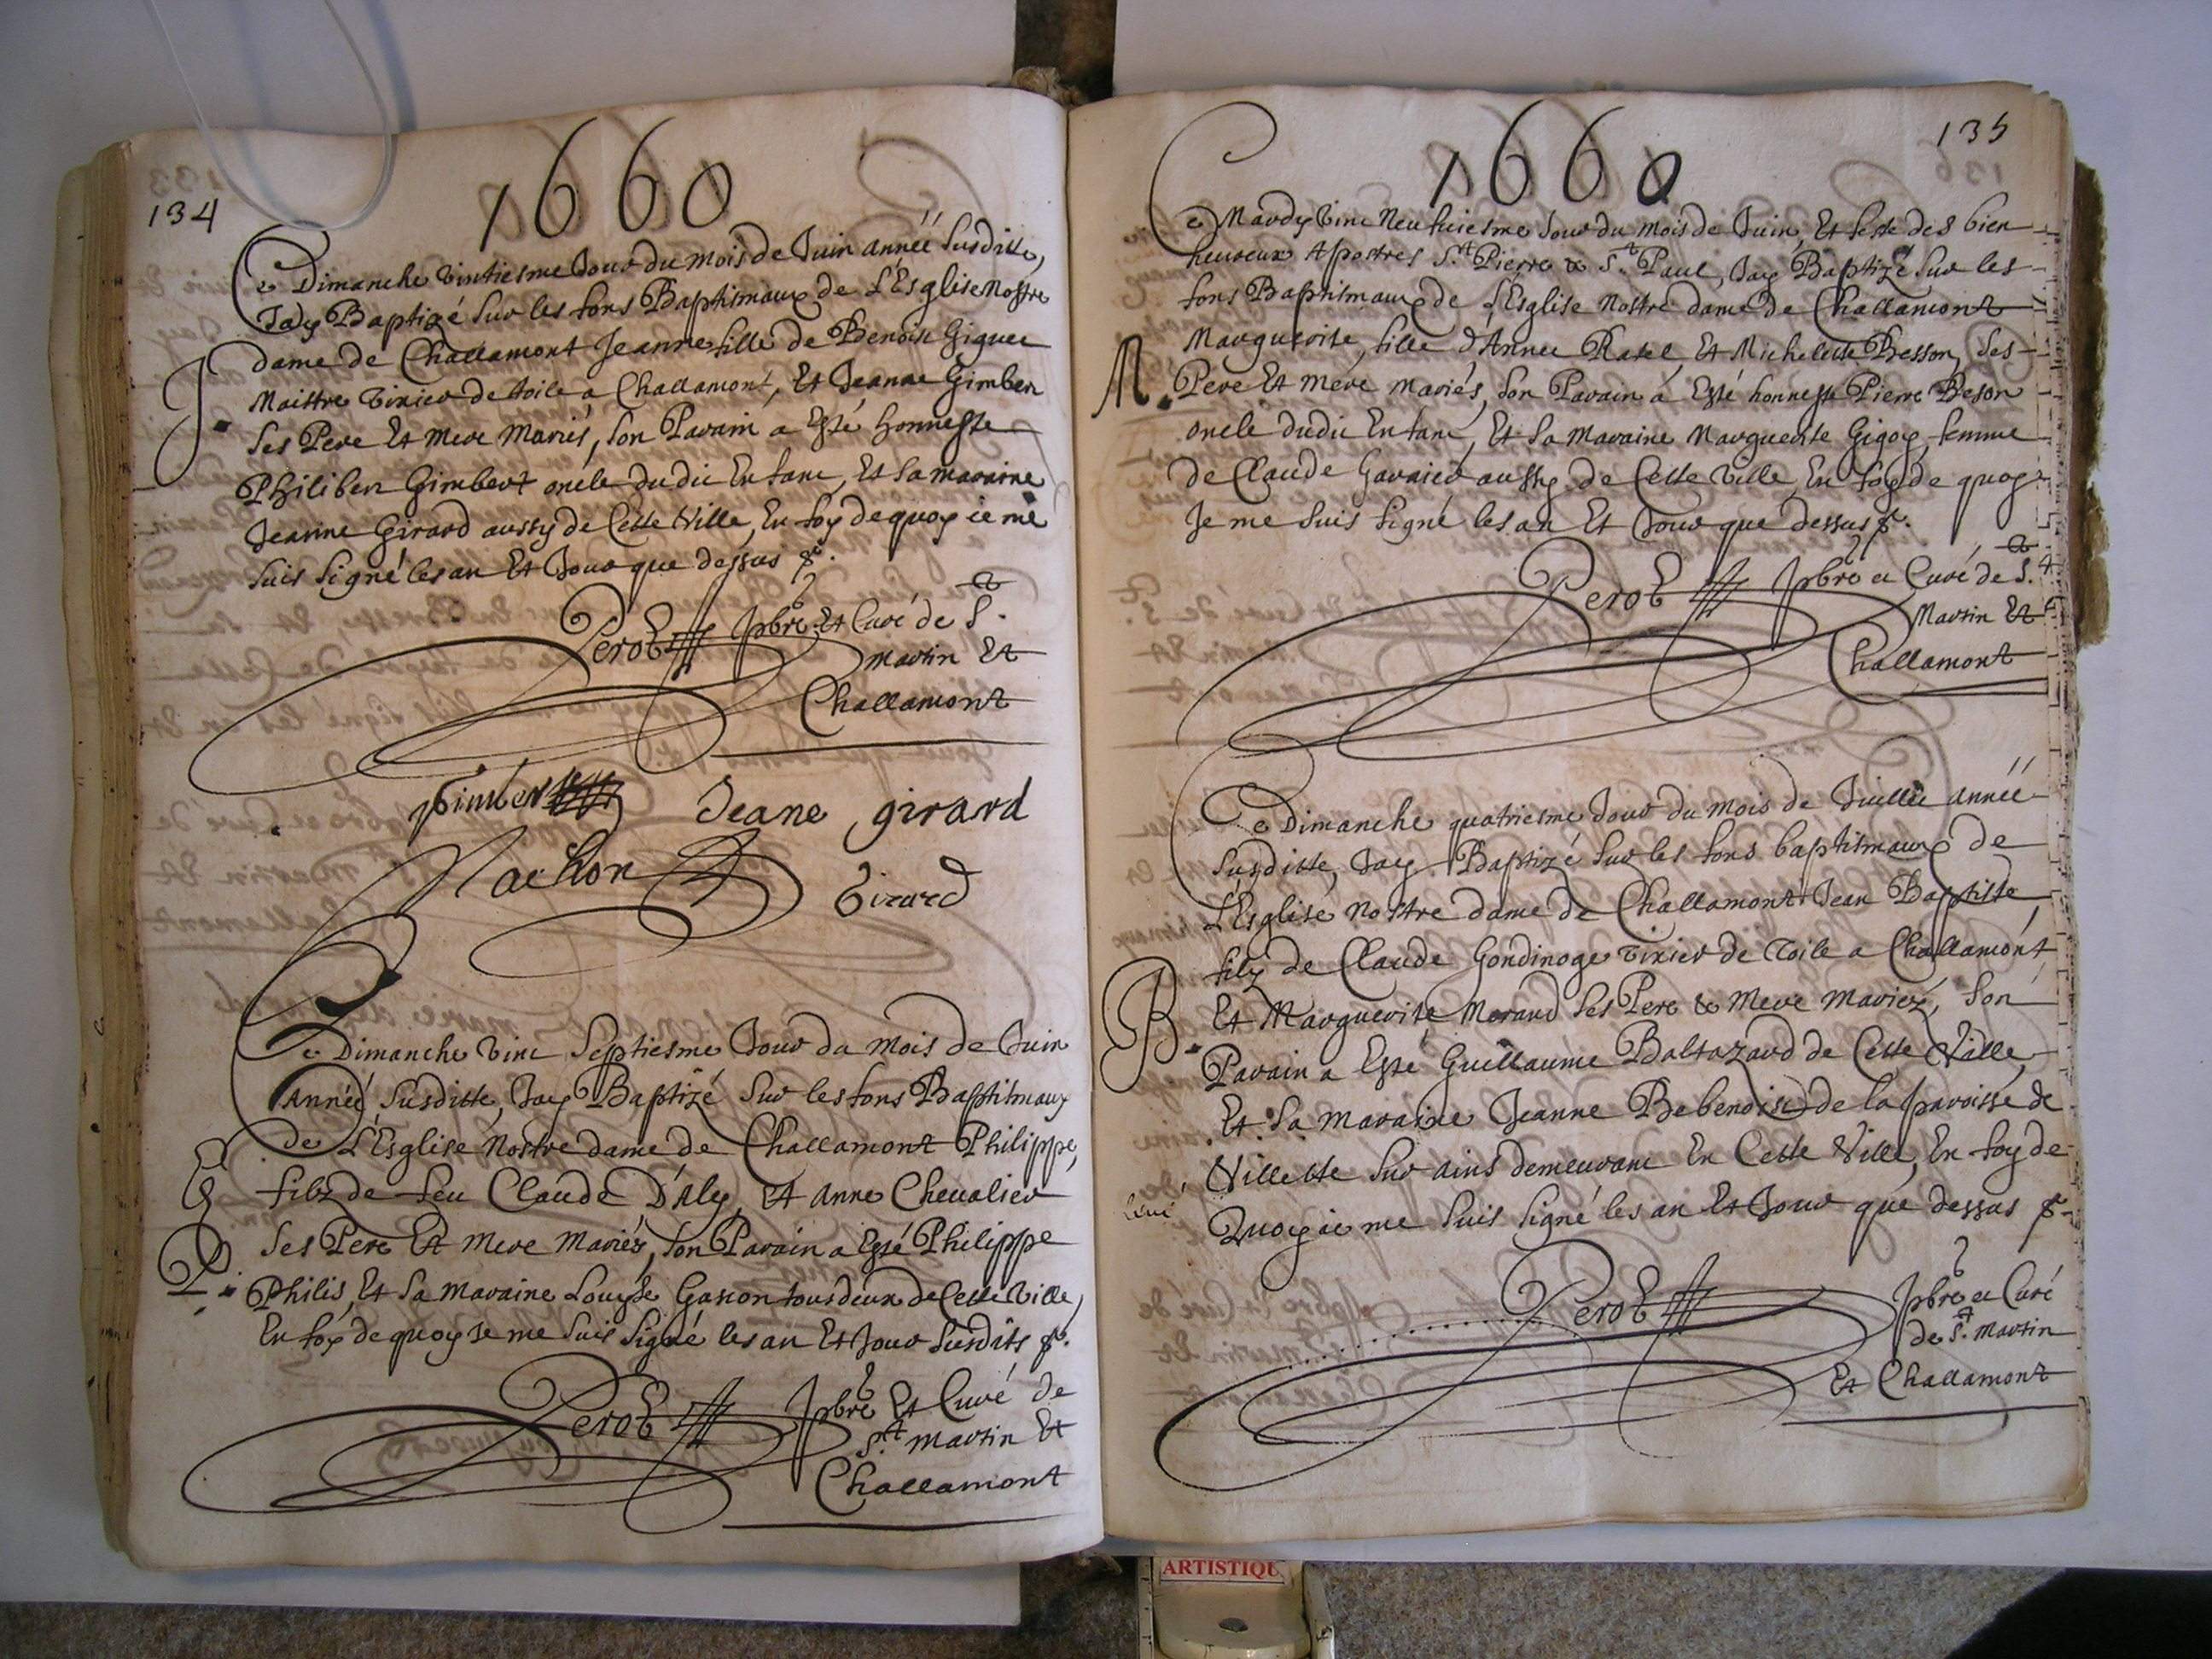 134
1660
Ce Dimanche vintiesme Jour du mois de Juin année susditte,
J'ay Baptizé sur les fons Baptismaux de L'Esglise Nostre
dame de Challamont Jeanne fille de Benoist Giguet
Maistre tixier de toile a Challamont, Et Jeanne Gimbert
J.
ses Pere Et mere Mariés, son Parain a Esté honneste
Philibert Gimbert oncle dudit Enfant, Et sa maraine
Jeanne Girard aussy de Cette Ville, En foy de quoy ie me
suis signé les an Et Jour que dessus
Perot pbre Et Curé de St.
martin Et
Challamont
Gimbert Jeane girard
Nachon Girard
Ce Dimanche vint Septiesme Jour du mois de Juin
Année susditte, J'ay Baptizé sur les fons Baptismaux
de L'Esglise Nostre dame de Challamont Philippe,
filz de feu Claude D'Aly, Et Anne Chevalier
ses Pere Et mere Mariés, son Parain a Esté Philippe
P.
Philis, Et sa maraine Louyse Gascon tous deux de Cette ville,
En foy de quoy Je me suis signé les an Et Jour susdits
Perot pbre Et Curé de
St. martin Et
Challamont
135
1660
Ce Mardy vint Neufviesme Jour du mois de Juin, Et feste des bien
heureux Apostres St. Pierre & St. Paul, J'ay Baptizé sur les
fons Baptismaux de L'Esglise Nostre dame de Challamont
Marguerite, fille d'Annet Ratel, Et Michelette Besson, ses
M.
Pere Et mere mariés, son Parain a Esté honneste Pierre Beson
oncle dudit Enfant, Et sa Maraine Marguerite Gigoy femme
de Claude Garnier aussy de Cette Ville, En foy de quoy
Je me suis signé les an Et Jour que dessus
Perot pbre et Curé de St.
Martin Et
Challamont
Ce Dimanche quatriesme Jour du mois de Juillet année
susditte, J'ay Baptizé sur les fons baptismaux de
L'Esglise Nostre dame de Challamont Jean Baptiste,
filz de Claude Gondinoge tixier de toile a Challamont
B.
Et Marguerite Morand ses Pere & Mere Mariez, son
Parain a Esté Guillaume Baltazard de Cette Ville,
Et sa maraine Jeanne Bebenoist de la paroisse de
Villette sur ains demeurant En Cette Ville, En foy de
Quoy ie me suis signé les an Et Jour que dessus
Perot pbre et Curé
de St. Martin
Et Challamont
ARTISTIQU